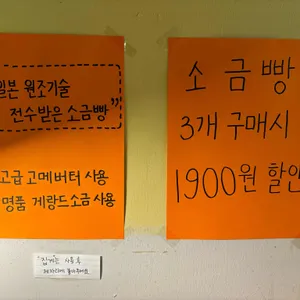 일본 원조기술
전수받은 소금빵"
고급 고메버터 사용
명품 게랑드소금 사용
소금빵
3개 구매시
1900원 할인
"집게는 사용 후